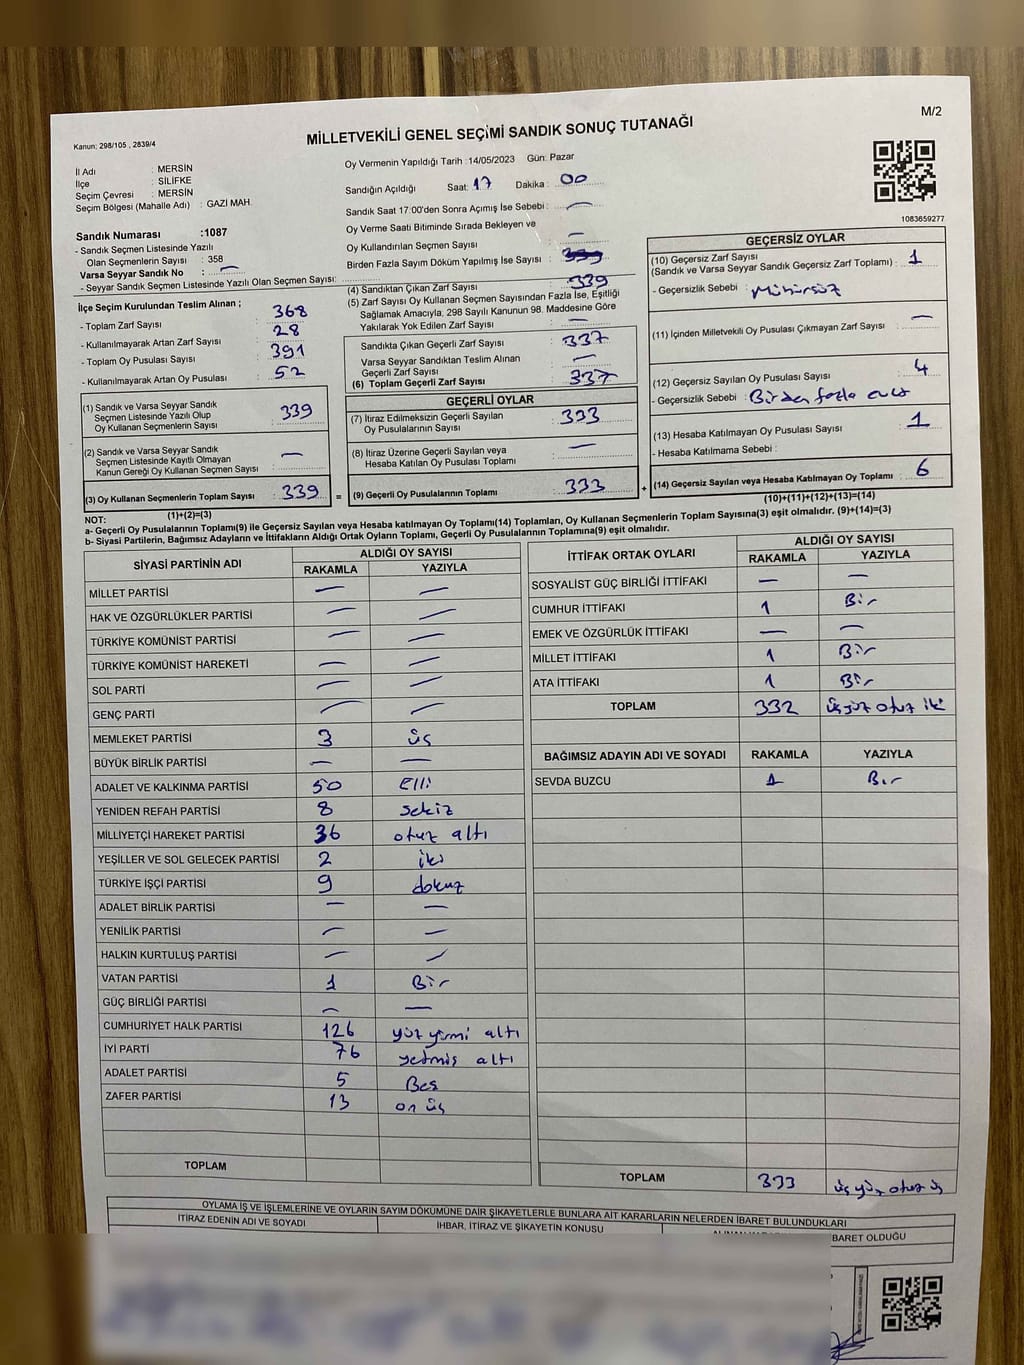 M/2
Kanun: 298/105 , 2839/4
MİLLETVEKİLİ GENEL SEÇİMİ SANDIK SONUÇ TUTANAĞI
İl Adı : MERSİN
İlçe : SİLİFKE
Seçim Çevresi : MERSİN
Seçim Bölgesi (Mahalle Adı) : GAZİ MAH.
Oy Vermenin Yapıldığı Tarih :14/05/2023 Gün: Pazar
Sandığın Açıldığı Saat: 17 Dakika : 00
Sandık Saat 17:00'den Sonra Açımış İse Sebebi : —
Oy Verme Saati Bitiminde Sırada Bekleyen ve
Oy Kullandırılan Seçmen Sayısı —
Birden Fazla Sayım Döküm Yapılmış İse Sayısı :
1083659277
Sandık Numarası :1087
- Sandık Seçmen Listesinde Yazılı
Olan Seçmenlerin Sayısı : 358
Varsa Seyyar Sandık No : —
- Seyyar Sandık Seçmen Listesinde Yazılı Olan Seçmen Sayısı:
İlçe Seçim Kurulundan Teslim Alınan ;
- Toplam Zarf Sayısı : 368
- Kullanılmayarak Artan Zarf Sayısı : 28
- Toplam Oy Pusulası Sayısı : 391
- Kullanılmayarak Artan Oy Pusulası : 52
(1) Sandık ve Varsa Seyyar Sandık
Seçmen Listesinde Yazılı Olup
Oy Kullanan Seçmenlerin Sayısı : 339
(2) Sandık ve Varsa Seyyar Sandık
Seçmen Listesinde Kayıtlı Olmayan
Kanun Gereği Oy Kullanan Seçmen Sayısı : —
(3) Oy Kullanan Seçmenlerin Toplam Sayısı : 339 =
(1)+(2)=(3)
(4) Sandıktan Çıkan Zarf Sayısı : 339
(5) Zarf Sayısı Oy Kullanan Seçmen Sayısından Fazla İse, Eşitliği
Sağlamak Amacıyla, 298 Sayılı Kanunun 98. Maddesine Göre
Yakılarak Yok Edilen Zarf Sayısı : —
Sandıkta Çıkan Geçerli Zarf Sayısı : 337
Varsa Seyyar Sandıktan Teslim Alınan
Geçerli Zarf Sayısı : —
(6) Toplam Geçerli Zarf Sayısı : 337
GEÇERLİ OYLAR
(7) İtiraz Edilmeksizin Geçerli Sayılan
Oy Pusulalarının Sayısı : 333
(8) İtiraz Üzerine Geçerli Sayılan veya
Hesaba Katılan Oy Pusulası Toplamı : —
(9) Geçerli Oy Pusulalarının Toplamı : 333 +
GEÇERSİZ OYLAR
(10) Geçersiz Zarf Sayısı : 1
(Sandık ve Varsa Seyyar Sandık Geçersiz Zarf Toplamı)
- Geçersizlik Sebebi : Mühürsüz
(11) İçinden Milletvekili Oy Pusulası Çıkmayan Zarf Sayısı : —
(12) Geçersiz Sayılan Oy Pusulası Sayısı : 4
- Geçersizlik Sebebi : Birden fazla
(13) Hesaba Katılmayan Oy Pusulası Sayısı : 1
- Hesaba Katılmama Sebebi :
(14) Geçersiz Sayılan veya Hesaba Katılmayan Oy Toplamı : 6
(10)+(11)+(12)+(13)=(14)
NOT:
a- Geçerli Oy Pusulalarının Toplamı(9) ile Geçersiz Sayılan veya Hesaba katılmayan Oy Toplamı(14) Toplamları, Oy Kullanan Seçmenlerin Toplam Sayısına(3) eşit olmalıdır. (9)+(14)=(3)
b- Siyasi Partilerin, Bağımsız Adayların ve İttifakların Aldığı Ortak Oyların Toplamı, Geçerli Oy Pusulalarının Toplamına(9) eşit olmalıdır.
SİYASİ PARTİNİN ADI ALDIĞI OY SAYISI
RAKAMLA YAZIYLA
MİLLET PARTİSİ — —
HAK VE ÖZGÜRLÜKLER PARTİSİ — —
TÜRKİYE KOMÜNİST PARTİSİ — —
TÜRKİYE KOMÜNİST HAREKETİ — —
SOL PARTİ — —
GENÇ PARTİ — —
MEMLEKET PARTİSİ 3 üç
BÜYÜK BİRLİK PARTİSİ — —
ADALET VE KALKINMA PARTİSİ 50 Elli
YENİDEN REFAH PARTİSİ 8 sekiz
MİLLİYETÇİ HAREKET PARTİSİ 36 otuz altı
YEŞİLLER VE SOL GELECEK PARTİSİ 2 iki
TÜRKİYE İŞÇİ PARTİSİ 9 dokuz
ADALET BİRLİK PARTİSİ — —
YENİLİK PARTİSİ — —
HALKIN KURTULUŞ PARTİSİ — —
VATAN PARTİSİ 1 Bir
GÜÇ BİRLİĞİ PARTİSİ — —
CUMHURİYET HALK PARTİSİ 126 yüz yirmi altı
İYİ PARTİ 76 yetmiş altı
ADALET PARTİSİ 5 Beş
ZAFER PARTİSİ 13 on üç
TOPLAM
İTTİFAK ORTAK OYLARI ALDIĞI OY SAYISI
RAKAMLA YAZIYLA
SOSYALİST GÜÇ BİRLİĞİ İTTİFAKI — —
CUMHUR İTTİFAKI 1 Bir
EMEK VE ÖZGÜRLÜK İTTİFAKI — —
MİLLET İTTİFAKI 1 Bir
ATA İTTİFAKI 1 Bir
TOPLAM 332 üçyüz otuz iki
BAĞIMSIZ ADAYIN ADI VE SOYADI RAKAMLA YAZIYLA
SEVDA BUZCU 1 Bir
TOPLAM 333 üç yüz otuz üç
OYLAMA İŞ VE İŞLEMLERİNE VE OYLARIN SAYIM DÖKÜMÜNE DAİR ŞİKAYETLERLE BUNLARA AİT KARARLARIN NELERDEN İBARET BULUNDUKLARI
İTİRAZ EDENİN ADI VE SOYADI İHBAR, İTİRAZ VE ŞİKAYETİN KONUSU BARET OLDUĞU